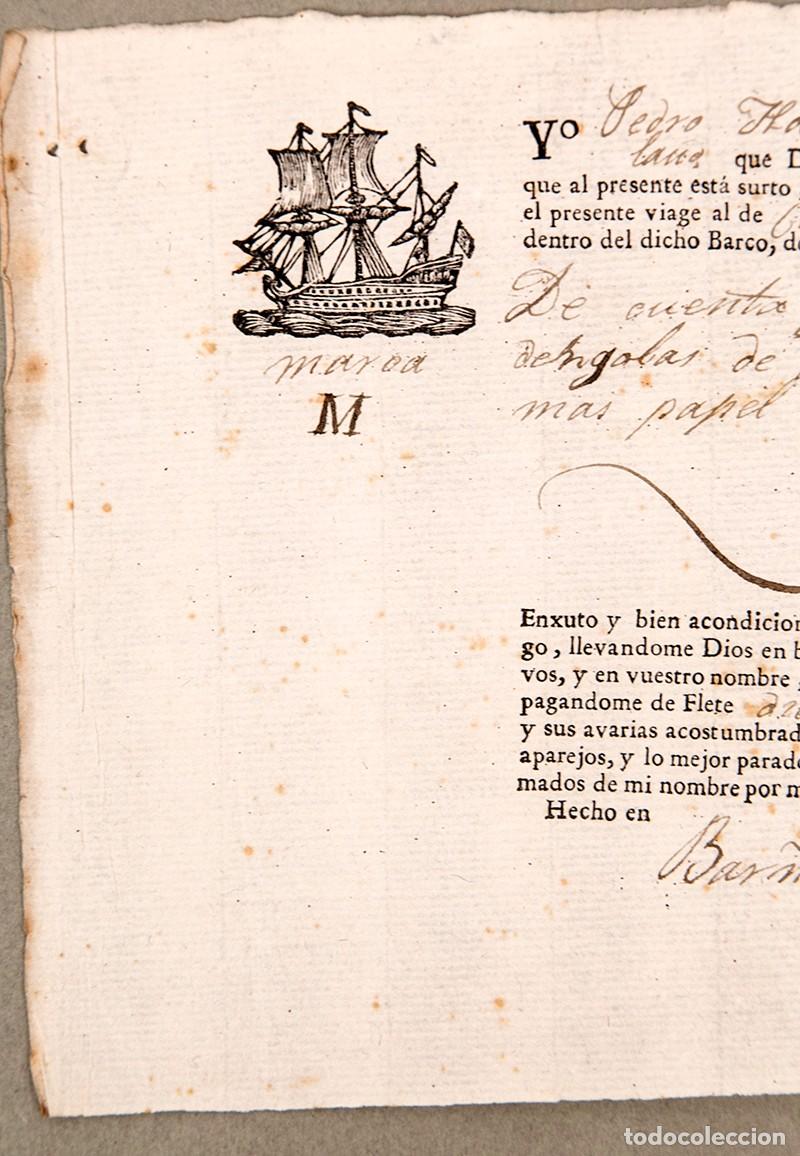 Yo Pedro
que
que al presente está surto
el presente viage al de
dentro del dicho Barco, de
De cuenta
marca
de
M
mas papel
Enxuto y bien acondicion
go, llevandome Dios en b
vos, y en vuestro nombre
pagandome de Flete
y sus avarias acostumbrad
aparejos, y lo mejor parado
mados de mi nombre por m
Hecho en
todocoleccion